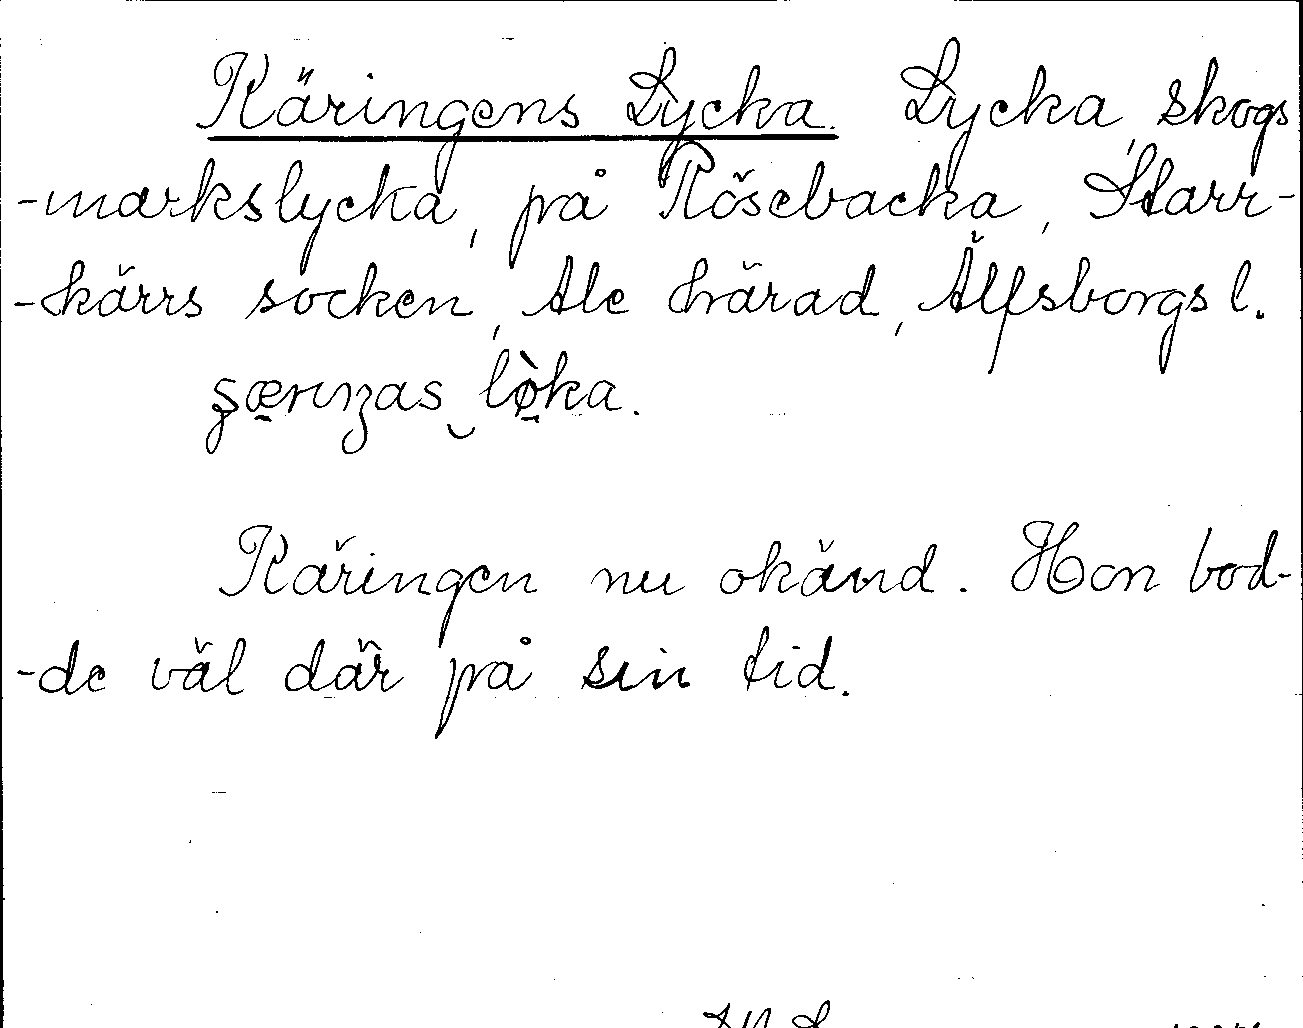 Käringens Lycka. Lycka, skogs
-markslycka, på Rösebacka, Starr-
-kärrs socken, Ale härad, Älfsborgs l.
lø̀ka.
Käringen nu okänd. Hon bod-
-de väl där på sin tid.